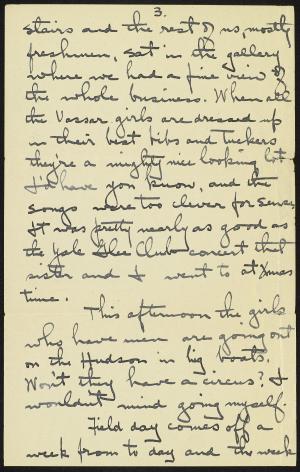 3.
stairs and the rest of us, mostly
freshmen, sat in the gallery
where we had a fine view of
the whole business. When all
the Vassar girls are dressed up
in their best bibs and tuckers
they're a mighty nice looking lot
I'd have you know, and the
songs were too clever for sense.
It was pretty nearly as good as
the Yale Glee Club concert that
sister and I went to at Xmas
time.
This afternoon the girls
who have men are going out
on the Hudson in big boats.
Won't they have a circus? I
wouldn't mind going myself
Field day comes off a
week from to day and the week